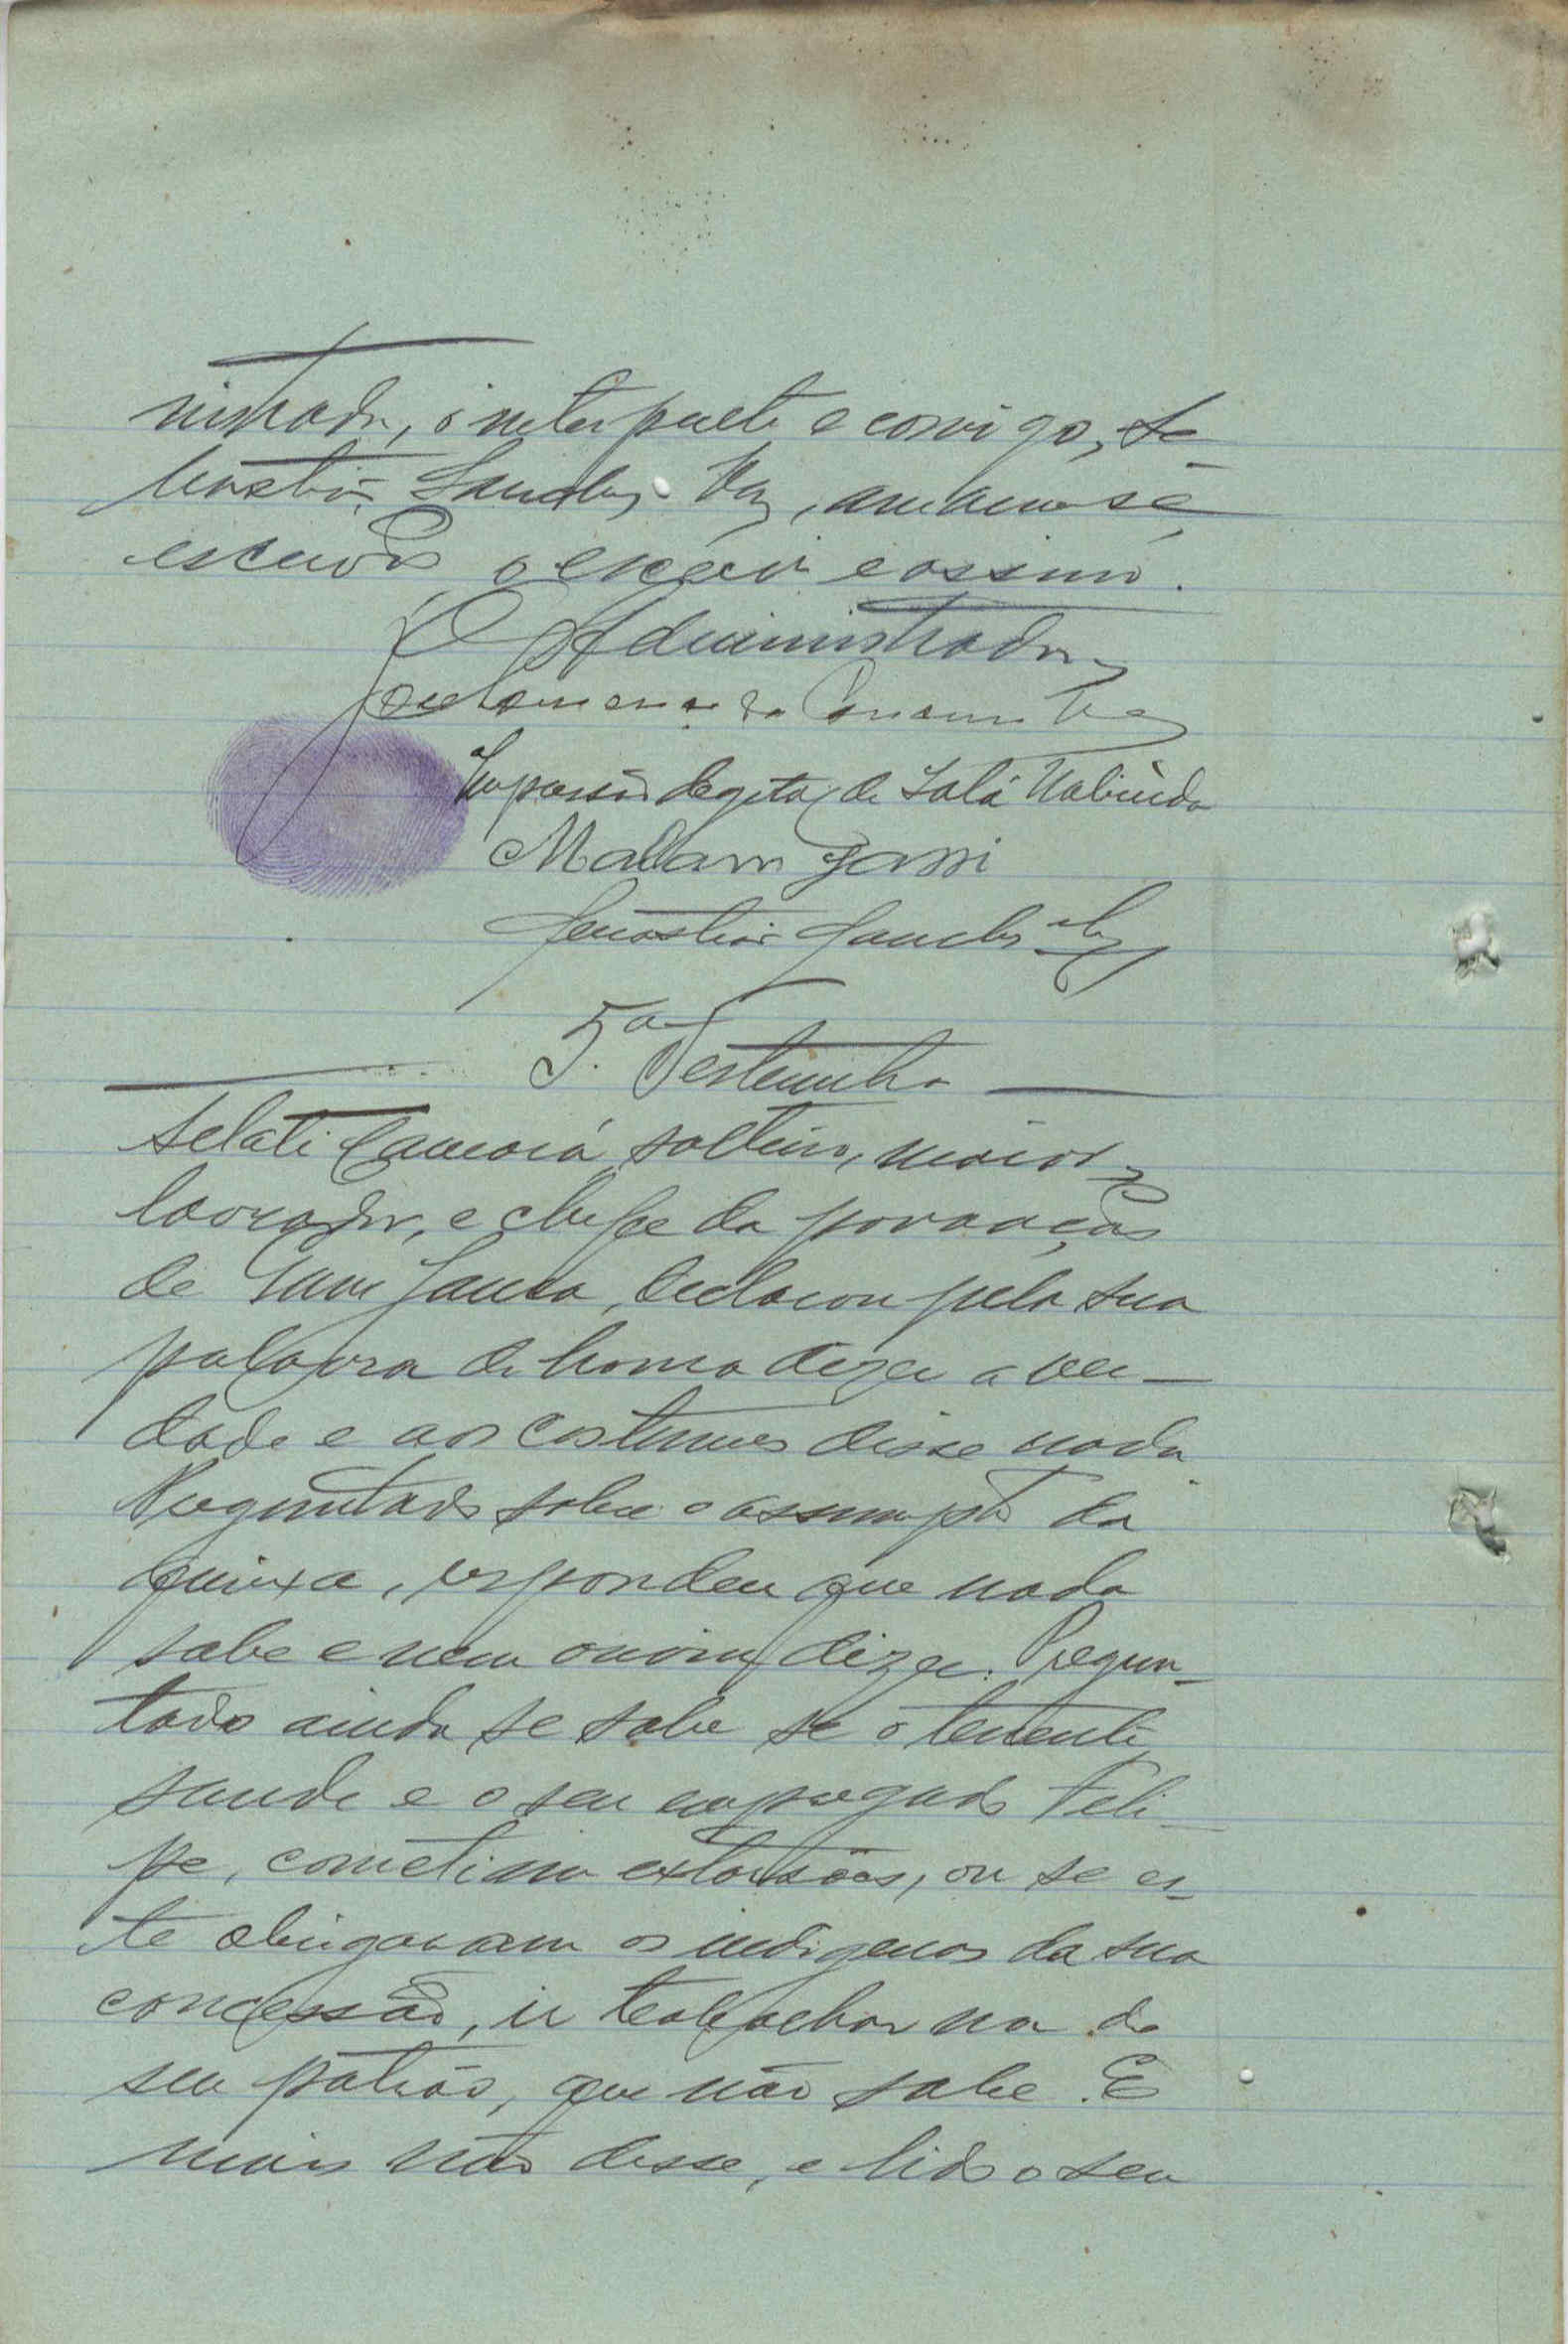 nistrador, o interprete e comigo, Se-
bastião Sanches Vaz, amanuense
escrivão, o escrevi e assino.
O Administrador
Impressão degital de Salá Nabiuda
Malam Jassi
Sebastião Sanches Vaz
5.ª Testemunha
Selati Camará, solteiro, maior,
lavrador, e chefe da povoação
de Sam Sancha, declarou pela sua
palavra de honra dizer a ver-
dade e aos costumes disse nada.
Preguntado sobre o assumpto da
queixa, respondeu que nada
sabe e nem ouviu dizer. Pregun-
tado ainda se sabe se o tenente
Saude e o seu empregado Feli-
pe, cometiam extorsões, ou se es-
te obrigavam os indigenas da sua
concessão, ir trabalhar na do
seu patrão, que não sabe. E
mais não disse, e lido o seu